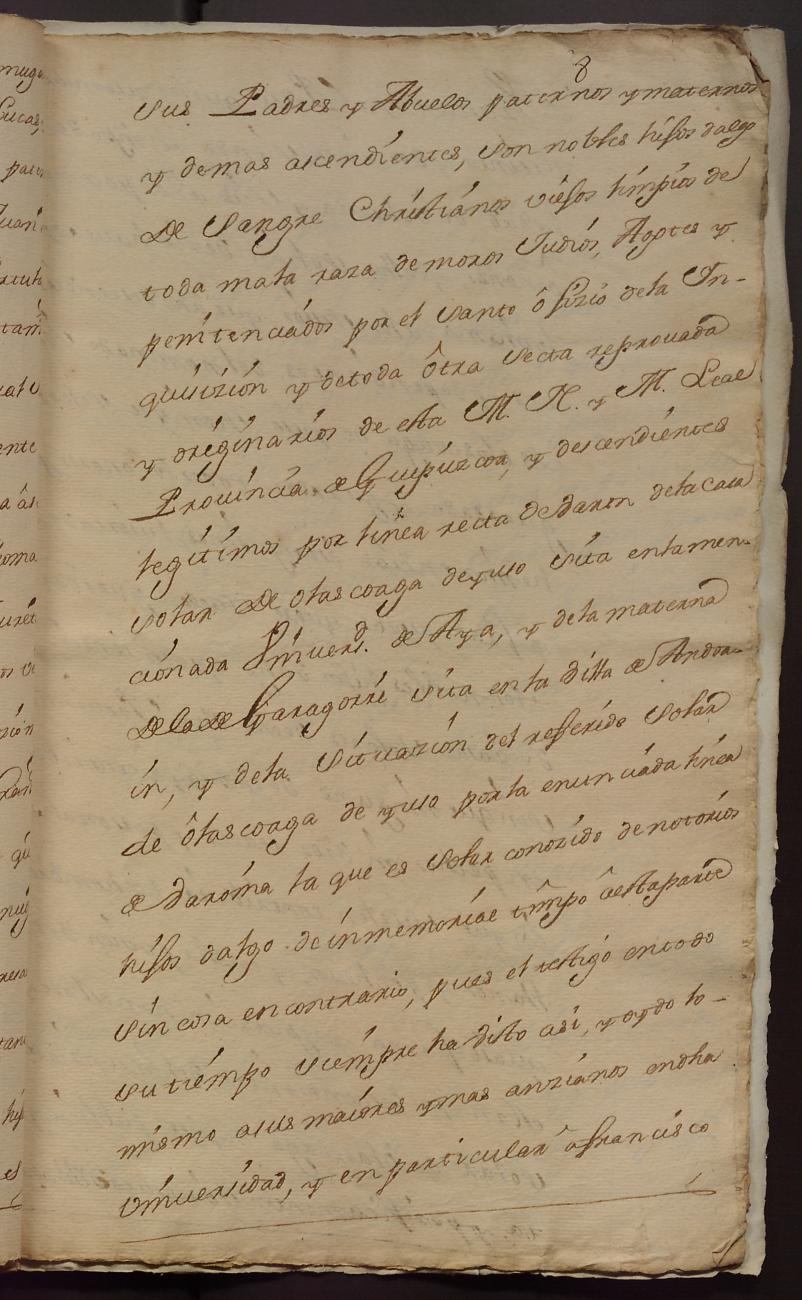 8
sus Padres y Abuelos paternos y maternos
y demas ascendientes, son nobles hijos dalgo
de Sangre Christianos viejos limpios de
toda mala raza de moros Judios, Agotes y
penitenciados por el Santo ôfizio de la In-
quisizión y de toda ôtra secta reprovada
y originarios de esta M. N. y M. Leal
Provincia de Guipúzcoa, y descendientes
legitimos por linea recta de Baron de la Casa
solar de Olascoaga de yuso sita en la men-
cionada Vniversd. de Aya, y de la materna
de la de Garagorri sita en la Villa de Andoa-
in, y de la situazión del referido Solar
de ôlascoaga de yuso por la enunciada linea
de Baronia la que es Solar conozido de notorios
hijos dalgo de inmemorial timpo â esta parte
sin cosa en contrario, pues el testigo en todo
su tiempo siempre ha visto asi, y oydo lo-
mismo a sus maiores y mas anzianos en dha
vniversidad, y en particular â francisco